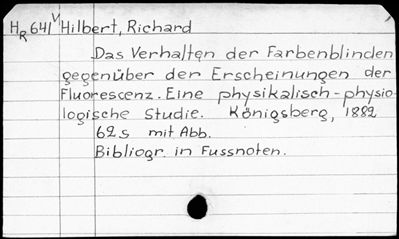 HR 641 V Hilbert, Richard
Das Verhalten der Farbenblinden
gegenüber der Erscheinungen der
Fluorescenz. Eine physikalisch-physio-
logische Studie. Königsberg, 1882
62s mit Abb.
Bibliogr. in Fussnoten.